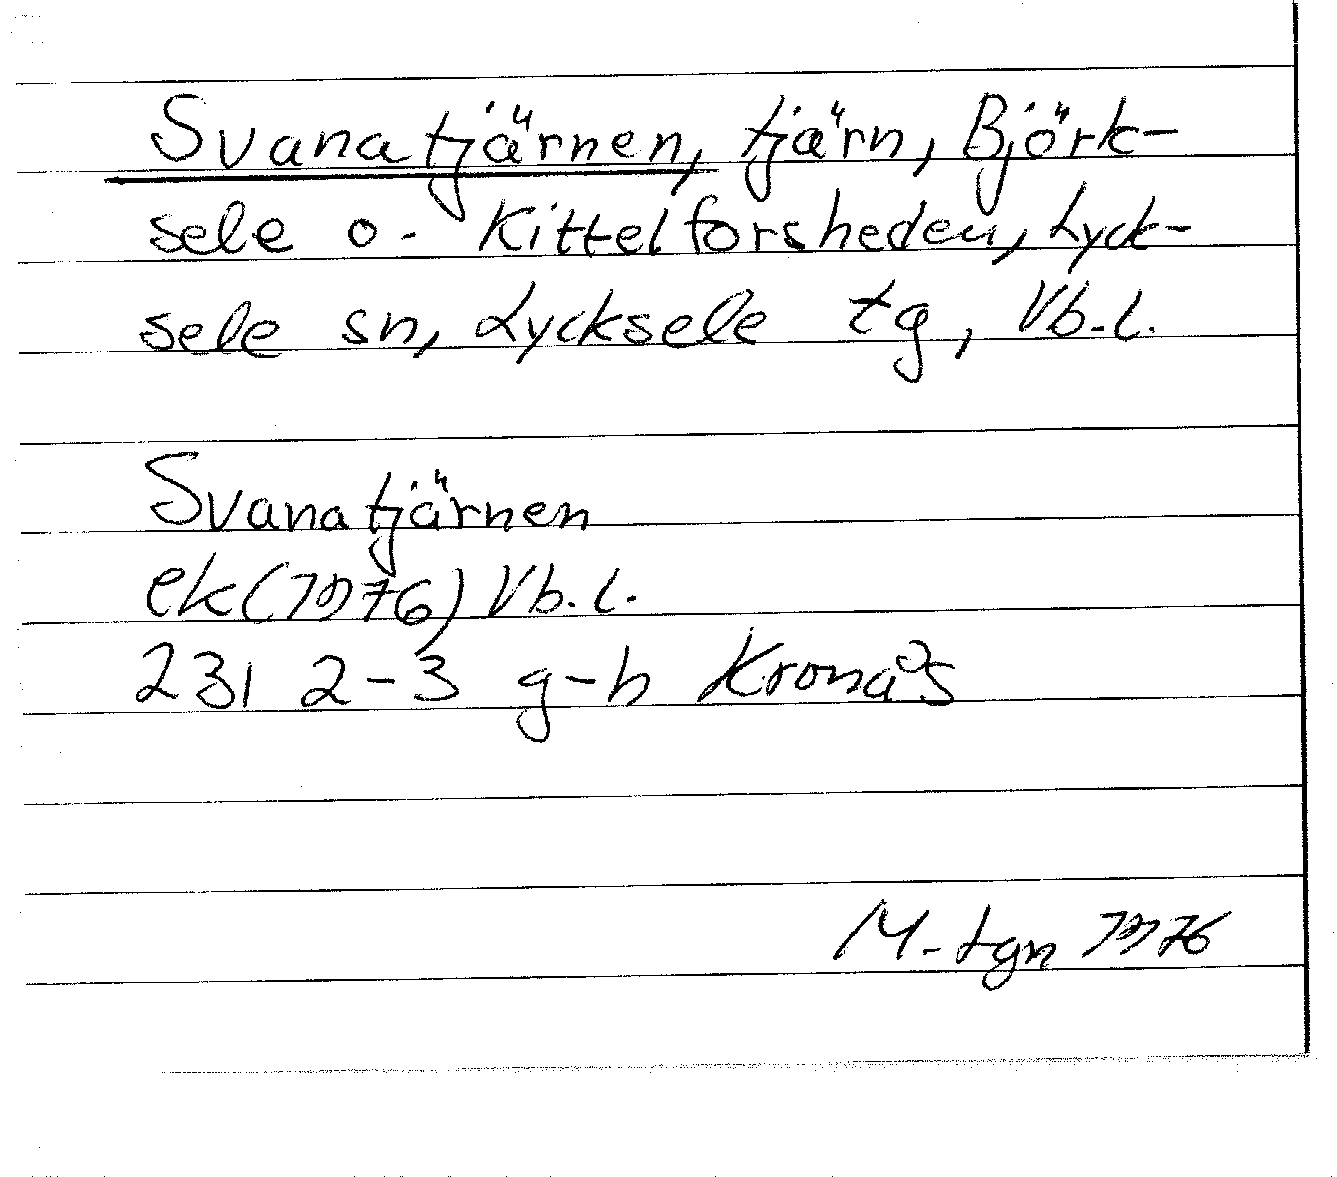 Svanatjärnen, tjärn, Björk-
sele o. Kittelforsheden, Lyck-
sele sn, Lycksele tg, Vb. l.
Svanatjärnen
ek (1976) Vb. l.
231 2-3 g-h Kronås
M-lgn 1976